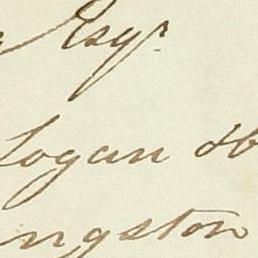 Esqr
Logan
ngston